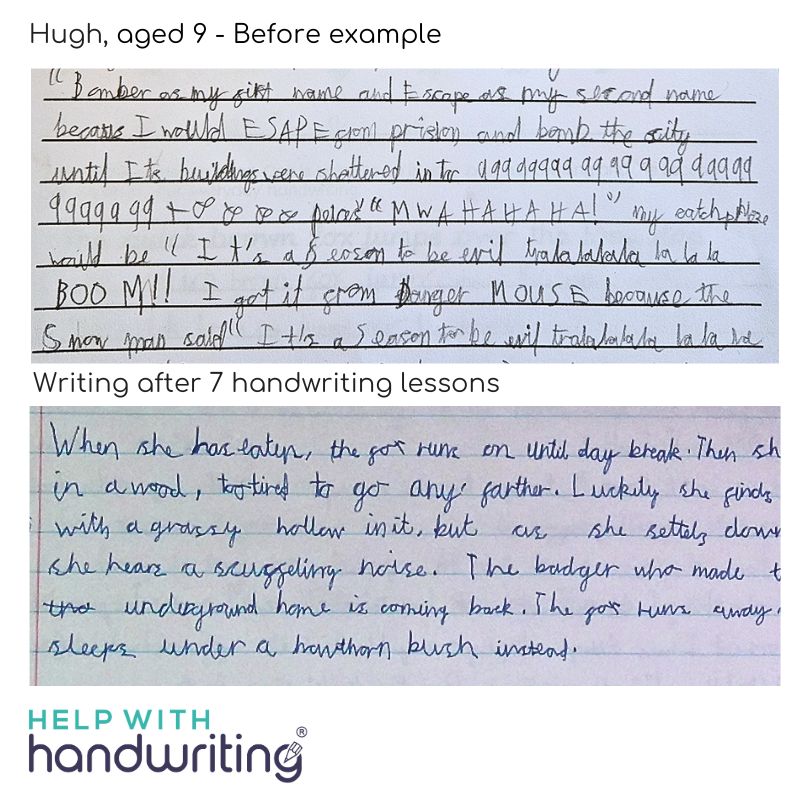 Hugh, aged 9 - Before example
" Bomber as my first name and Escape as my second name
becaus I would ESAPE from prision and bomb the scity
until Its buildings were shattered in to 999 99999 99 99 9 99 99999
9999 9 99 + ∞ ∞ ∞ ∞ " MWAHAHAHAHA! " my catchphraze
would be " I t's a Seoson to be evil tralalalalala la la la
BOO M!! I got it from Danger MOUSE becouse the
Snow man said " I t's a Season to be evil tralalalalala la la la
Writing after 7 handwriting lessons
When she has eaten, the fox runs on until day break. Then sh
in a wood, too tired to go any farther. Luckily she finds
with a grassy hollow in it, but as she settels down
she hears a scuffeling noise. The badger who made t
the underground home is coming back. The fox runs away.
sleeps under a hawthorn bush instead.
HELP WITH
handwriting®